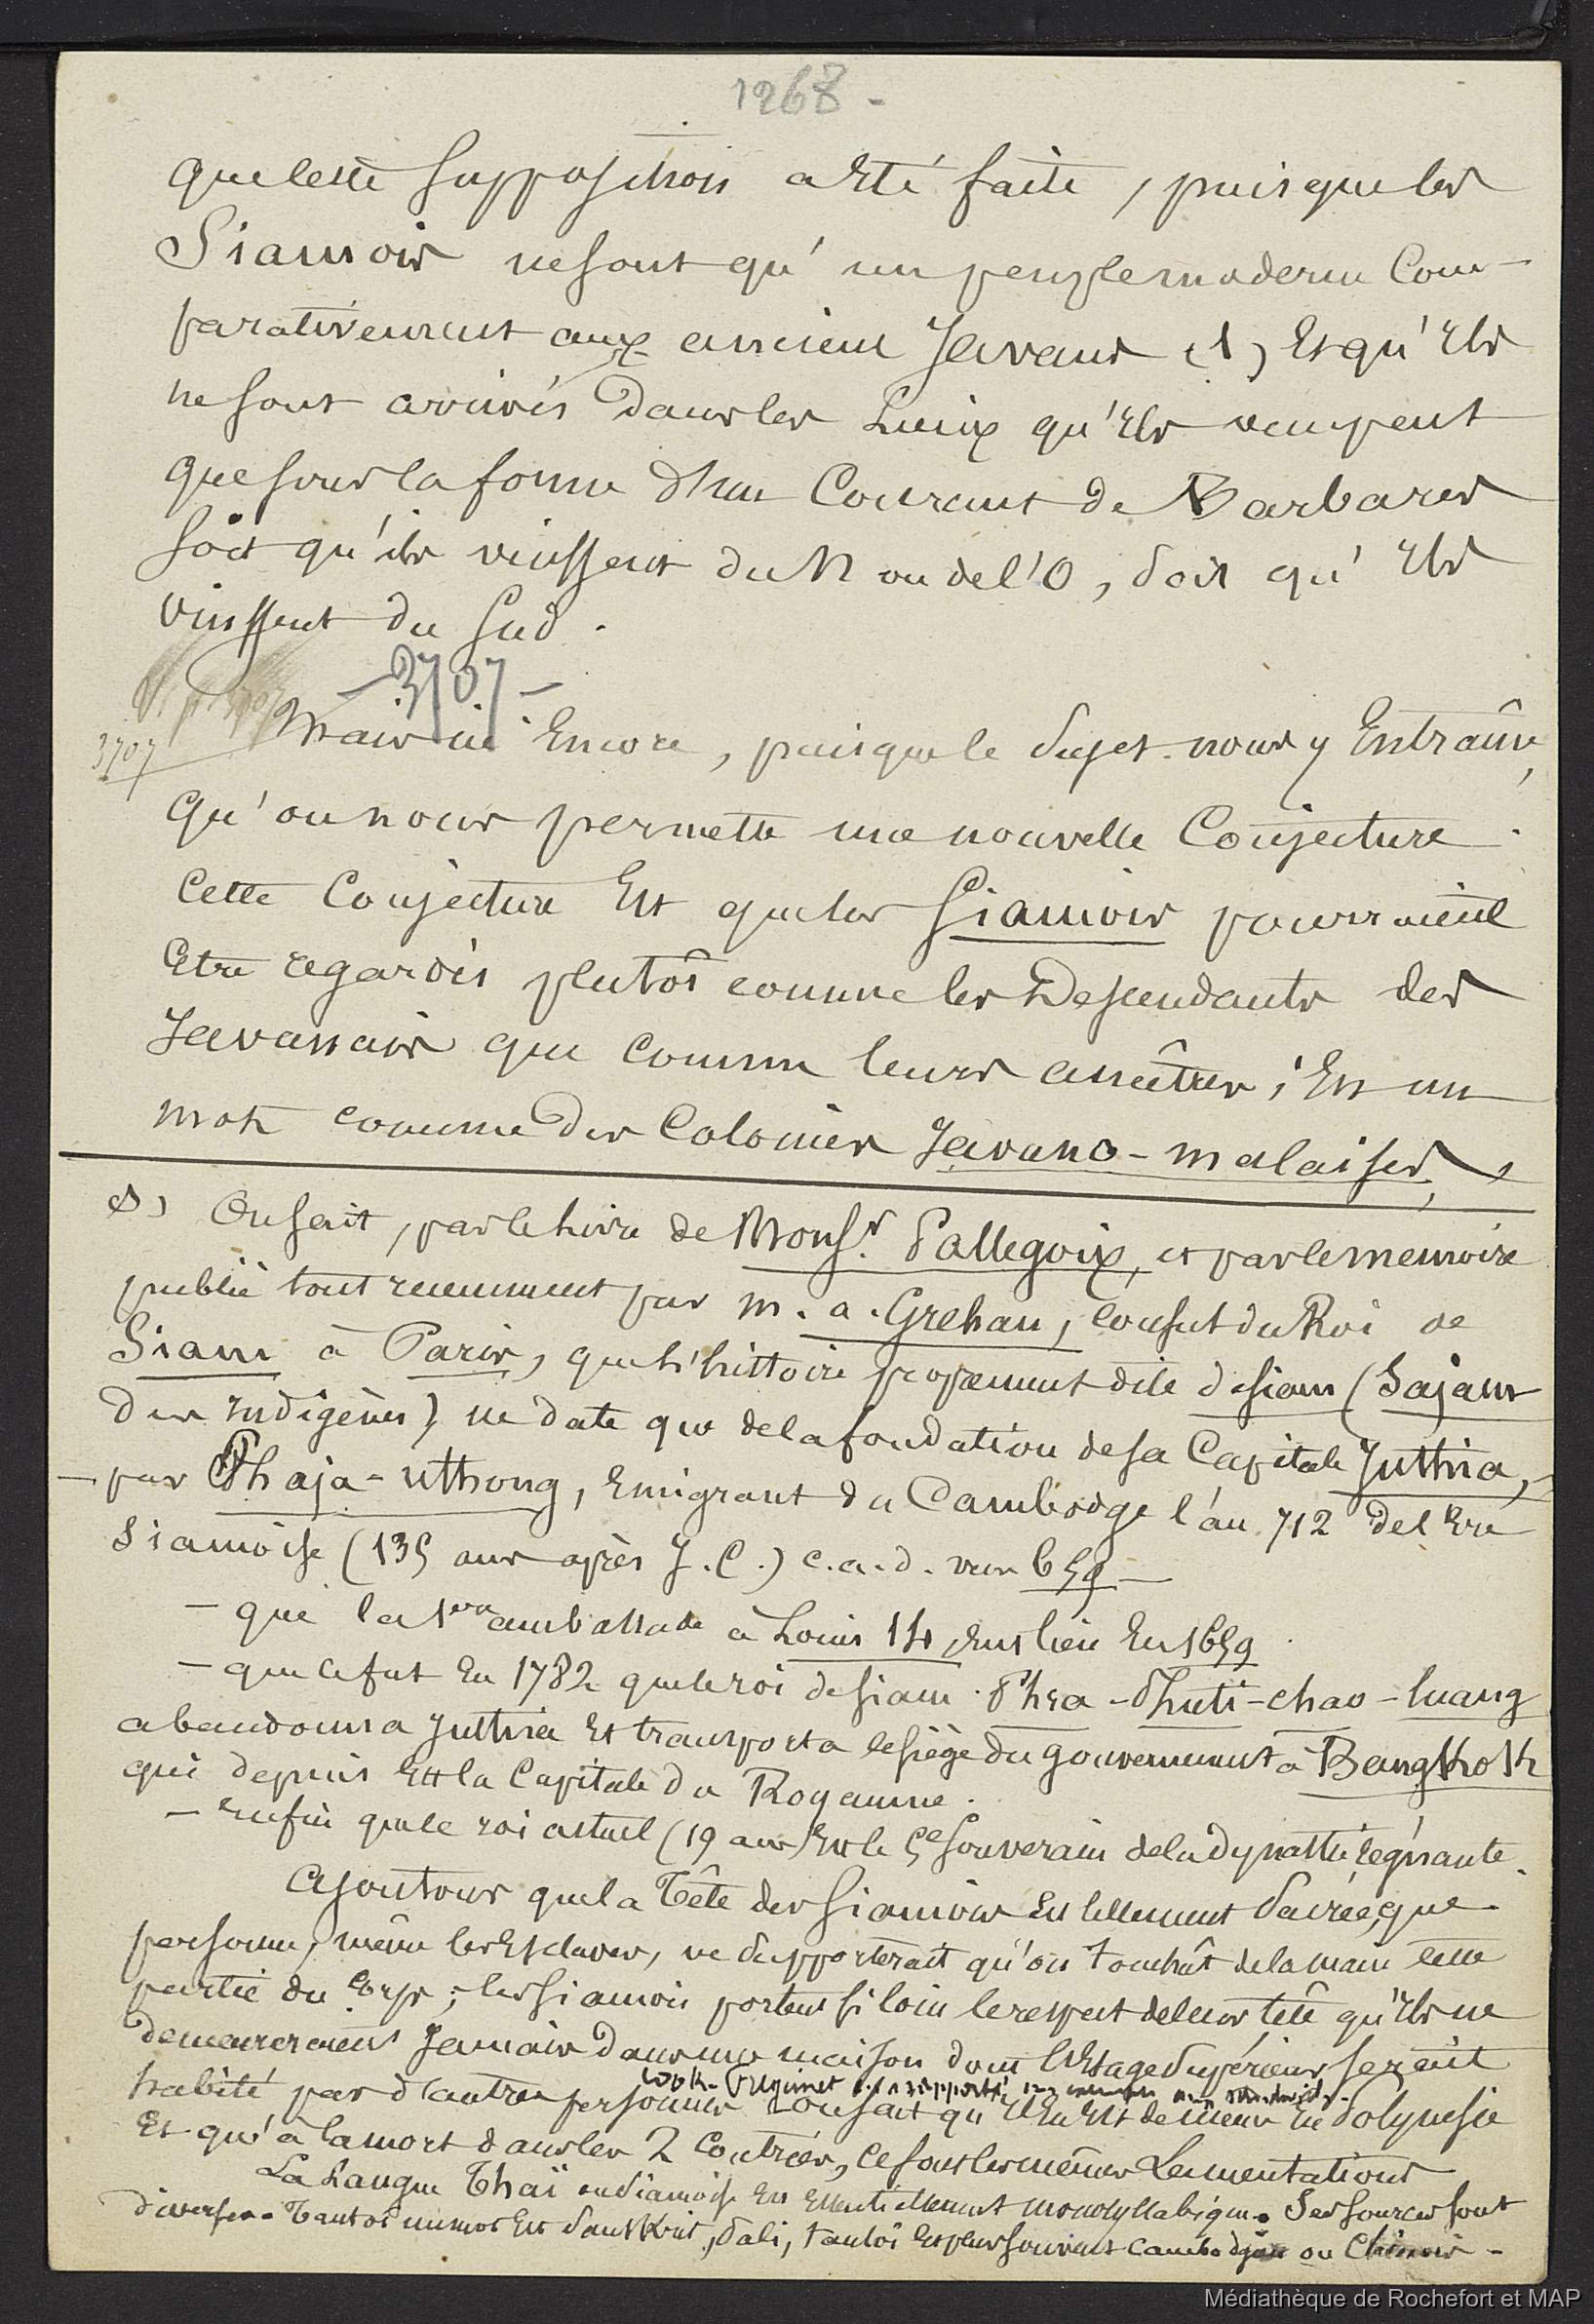 1268 -
que cette supposition a été faite, puisque les
Siamois ne sont qu'un peuple moderne com-
parativement aux anciens Javans (1) et qu'ils
ne sont arrivés dans les lieux qu'ils occupent
que sous la forme d'un courant de Barbares
soit qu'ils vinssent du N ou de l'O, soit qu'ils
vinssent du Sud.
- 3707 -
3707
Mais ici encore, puisque le sujet nous y entraîne,
qu'on nous permette une nouvelle conjecture.
Cette conjecture est que les Siamois pourraient
être regardés plutôt comme les Descendants des
Javanais que comme leurs ancêtres; en un
mot comme des Colonies Javano-malaises,
(1) On sait, par le livre de Monsr. Pallegoix, et par le memoire
publié tout recemment par M. A. Grehan, consul du Roi de
Siam à Paris, que l'histoire proprement dite de Siam (Sajam
des indigènes) ne date que de la fondation de sa Capitale Juthia,
- par Phaja-Uthong, émigrant du Cambodge l'an 712 de l'Ere
Siamoise (135 ans après J.C.) c.a.d. vers 659 -
- que la 1ere ambassade à Louis 14 eut lieu en 1659
- que ce fut en 1782 que le roi de Siam Phra-Phuti-chao-luang
abandonna Juthia et transporta le siège du gouvernement à Bangkok
qui depuis est la Capitale du Royaume.
- enfin que le roi actuel (19 ans) est le 5e souverain de la dynastie régnante.
Ajoutons que la Tête des Siamois est tellement sacrée, que
personne, même les esclaves, ne supporterait qu'on touchât de la main cette
partie du corps; les Siamois portent si loin le respect de leur tête qu'ils ne
demeureraient jamais dans une maison dont l'Etage supérieur serait
habité par d'autres personnes - on sait qu'il en est de même en Polynésie
Et qu'à la mort dans les 2 Contrées, ce sont les mêmes Lamentations
La Langue Thaï ou Siamoise est essentiellement monosyllabique. Ses sources sont
diverses. Tantôt un mot est sanskrit, pali, tantôt et plus souvent cambodgien ou Chinois -
Médiathèque de Rochefort et MAP